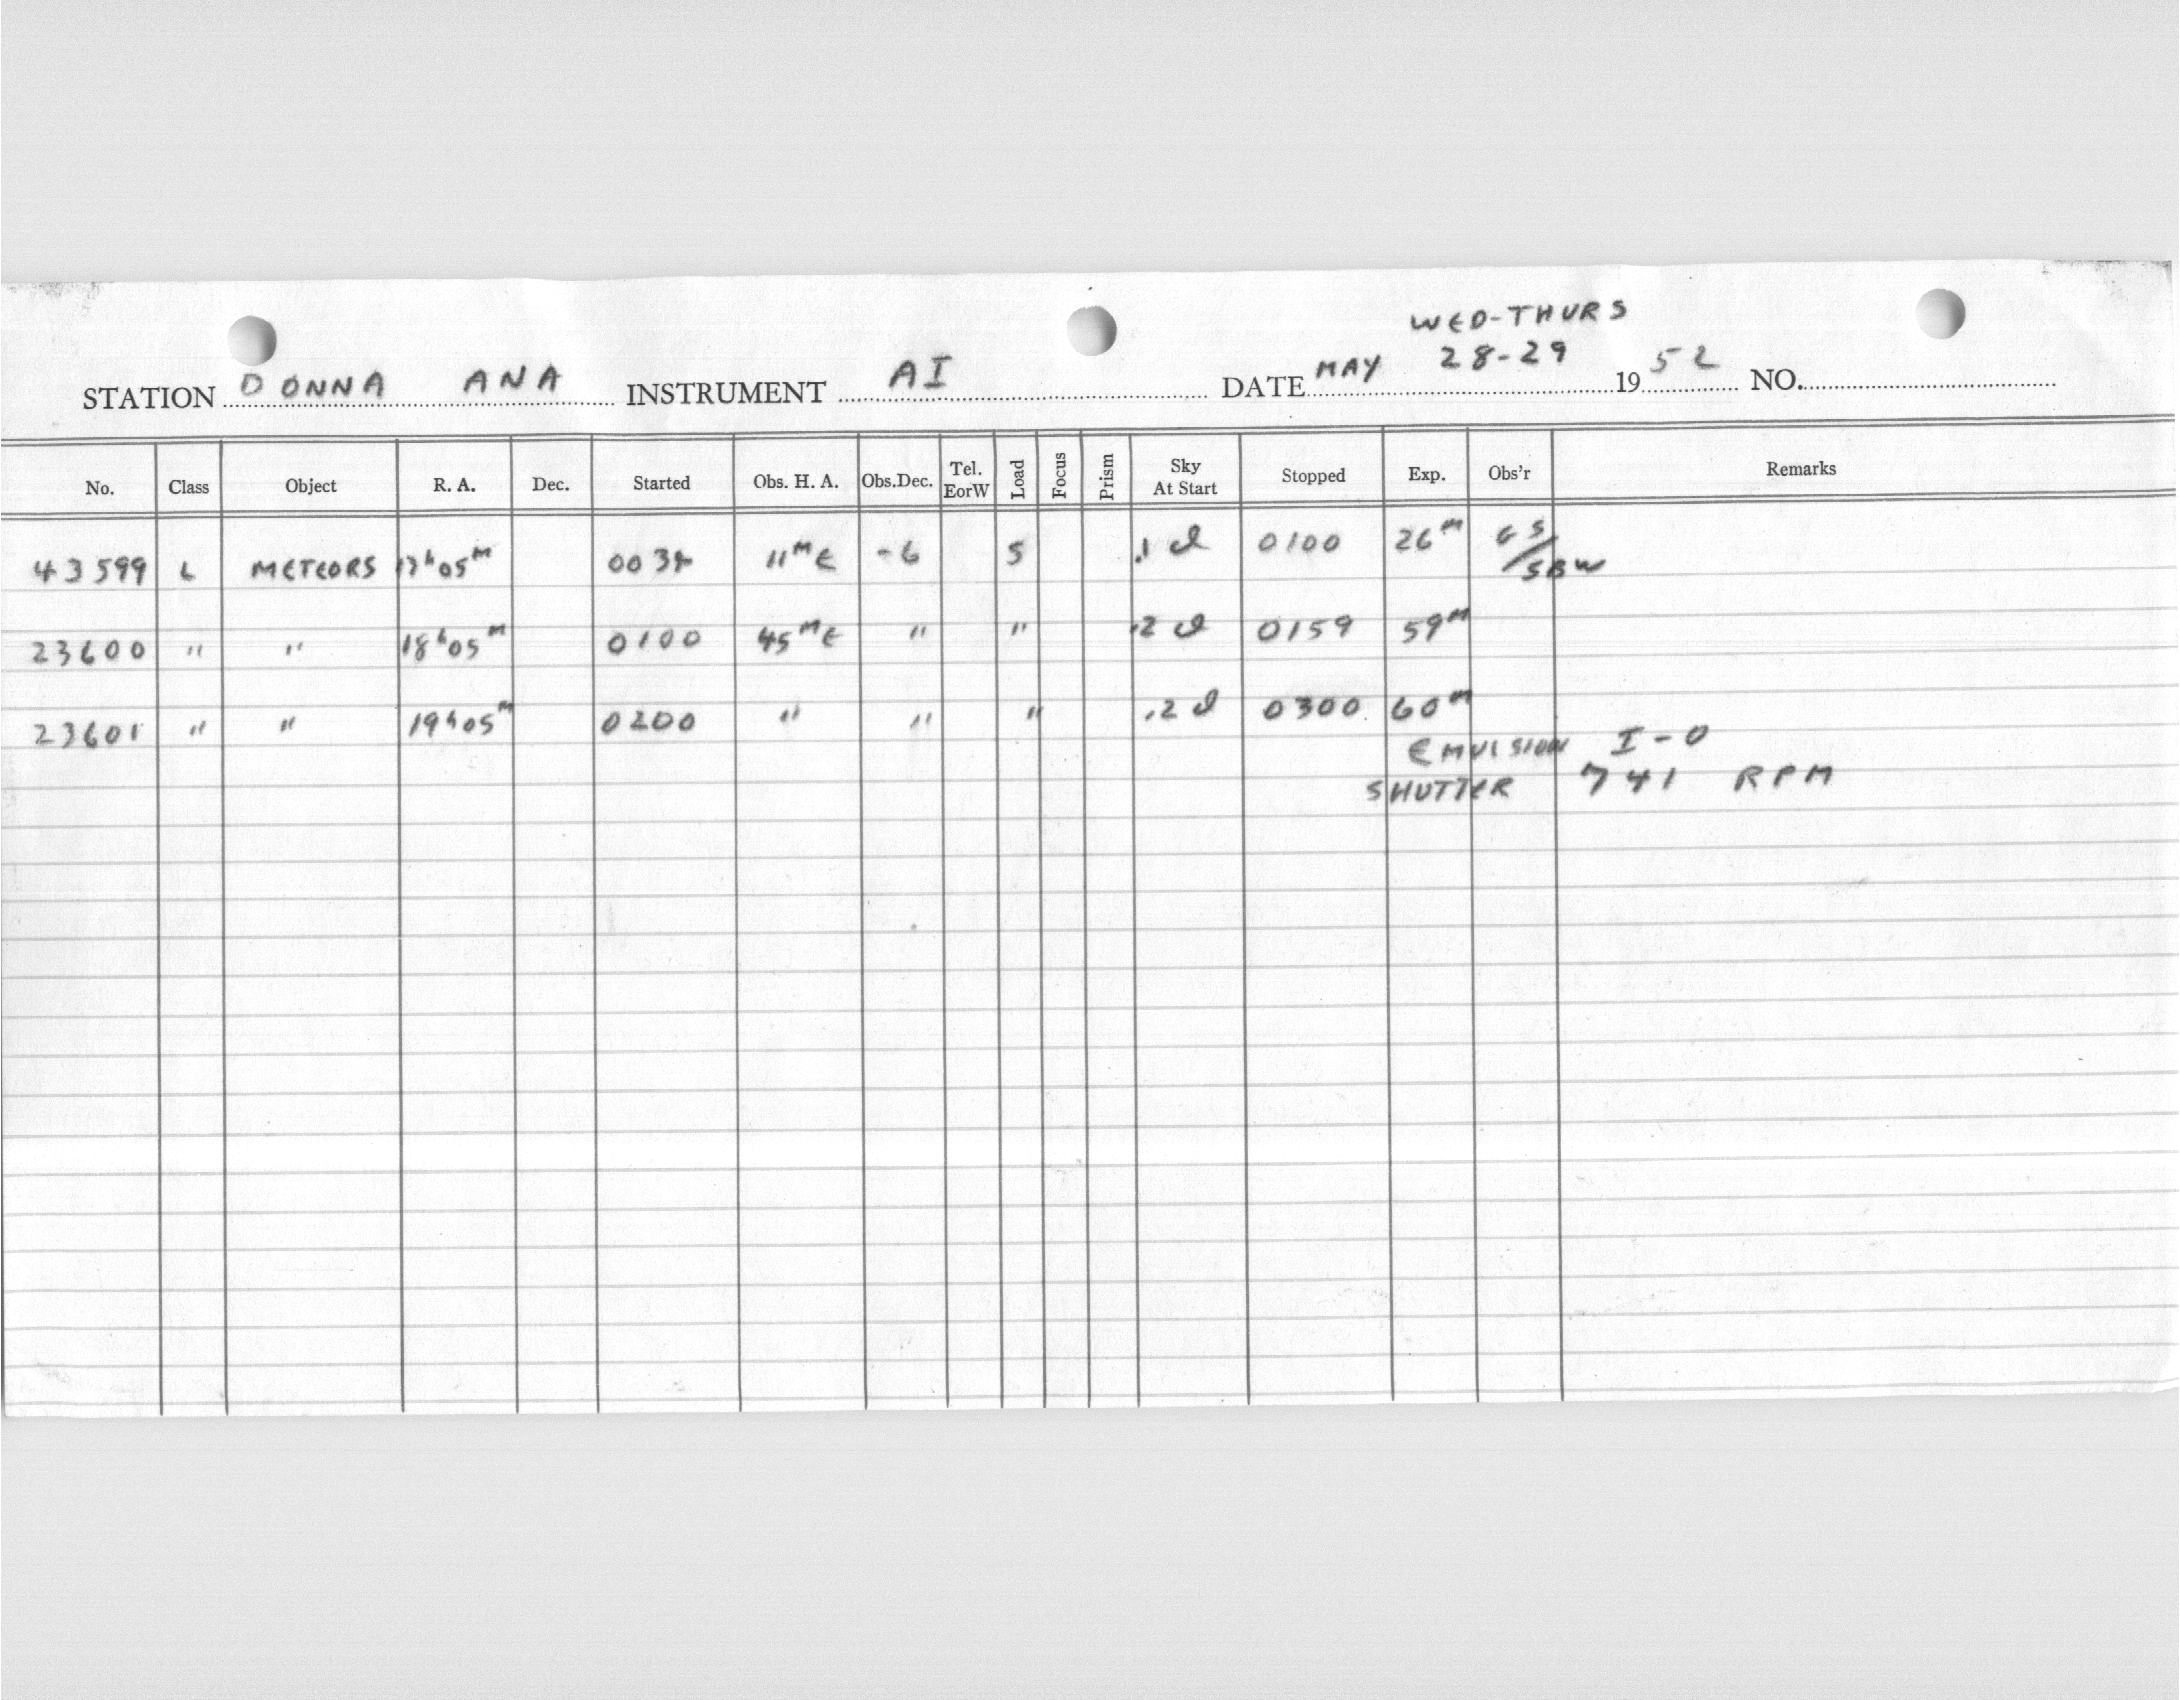 WED-THURS
STATION DONNA ANA INSTRUMENT AI DATE MAY 28-29 1952 NO.
No. Class Object R. A. Dec. Started Obs. H. A. Obs.Dec. Tel. EorW Load Focus Prism Sky At Start Stopped Exp. Obs'r Remarks
43599 L METEORS 17h05M 0034 11ME -6 5 .1 d 0100 26m GS/SBW
23600 " " 18h05M 0100 45ME " " .2 d 0159 59m
23601 " " 19h05M 0200 " " " .2 d 0300 60m
EMULSION I-O
SHUTTER 741 RPM